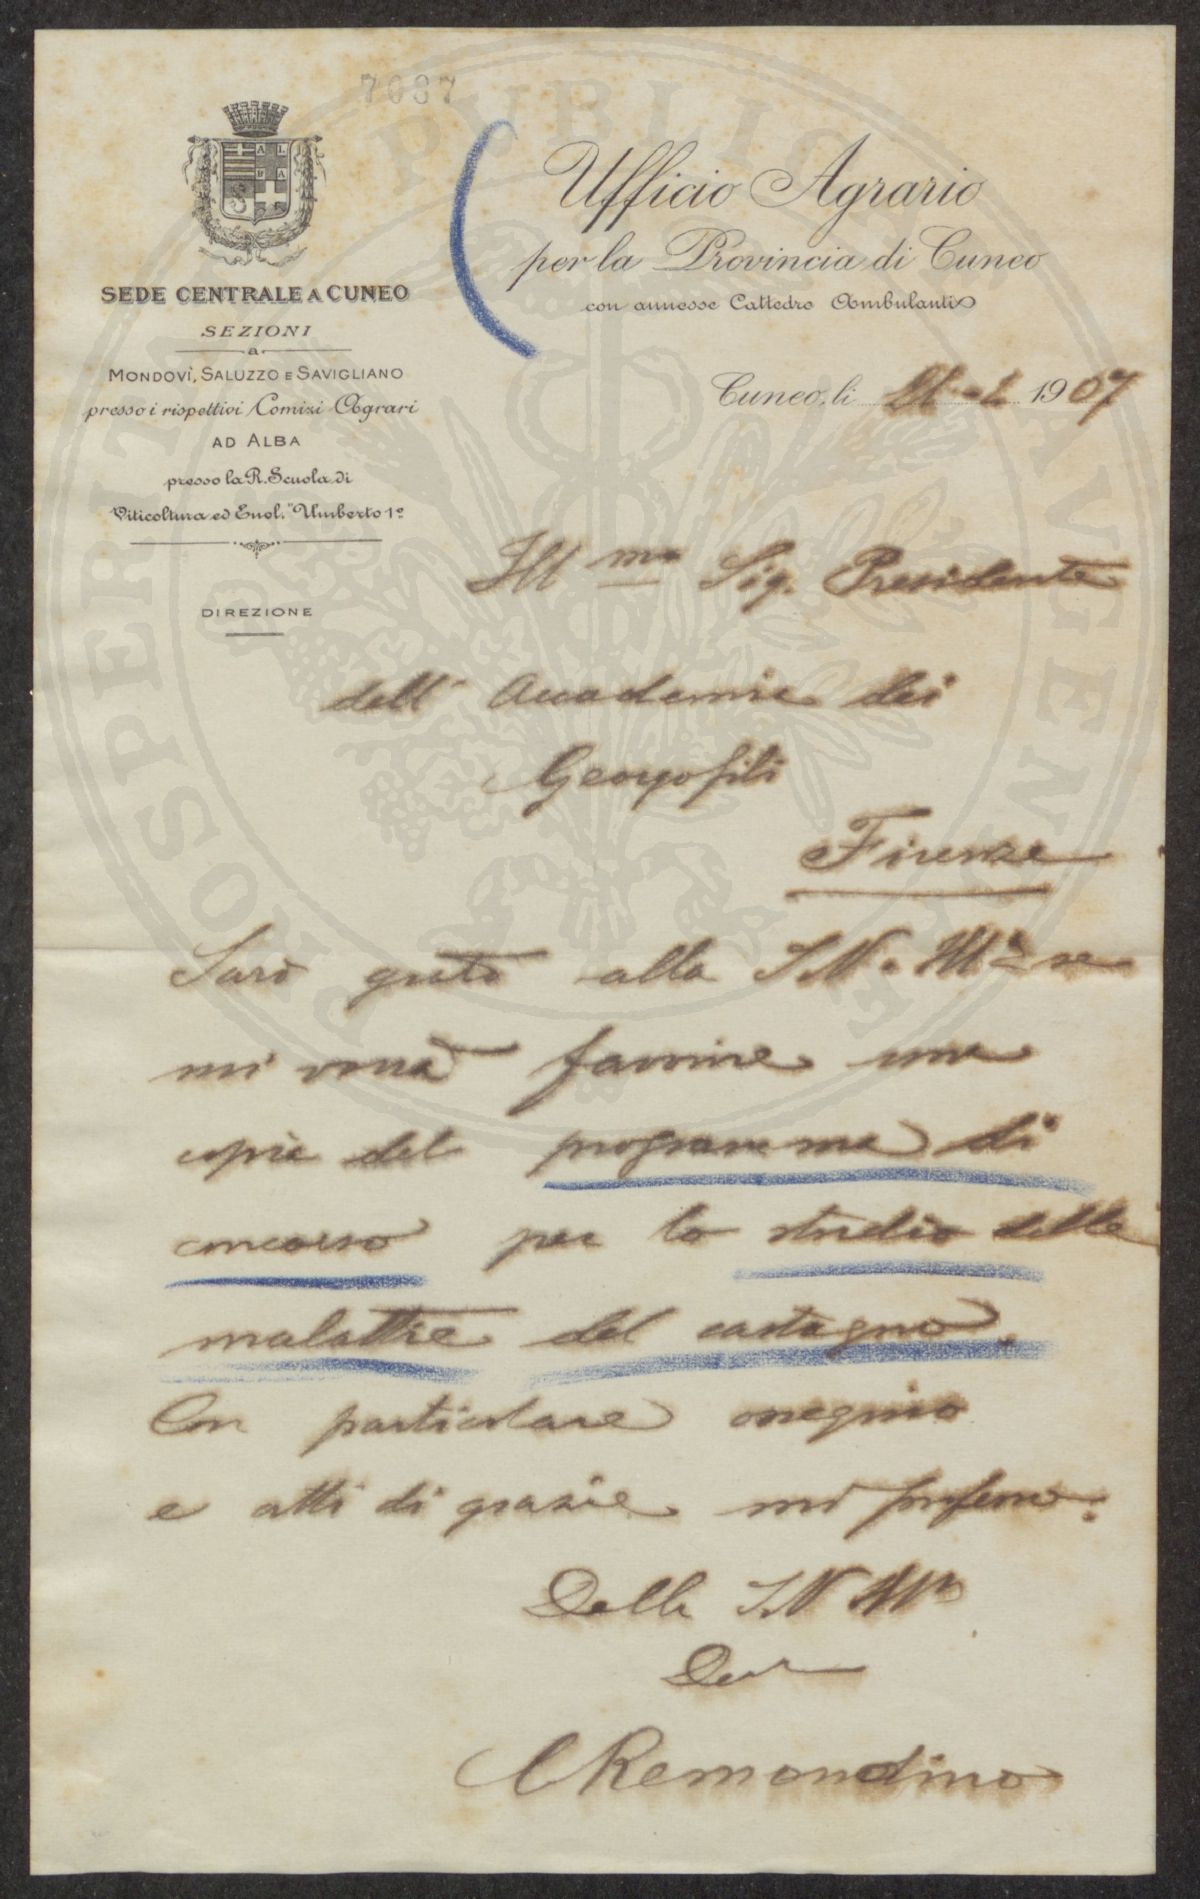 7037
SEDE CENTRALE A CUNEO
SEZIONI
a
MONDOVÌ, SALUZZO E SAVIGLIANO
presso i rispettivi Comizi Agrari
AD ALBA
presso la R. Scuola di
Viticoltura ed Enol. "Umberto 1º
DIREZIONE
Ufficio Agrario
per la Provincia di Cuneo
con annesse Cattedre Ambulanti
Cuneo, li 1907
Ill mo Sig. Presidente
dell' Accademia dei
Georgofili
Firenze
Sarò grato alla S.V. Ill.ma se
mi vorrà favorire una
copia del programma di
concorso per lo studio delle
malattie del castagno.
Con particolare ossequio
e atti di grazie mi professo.
Della S.V. Ill.ma
Dev
C Remondino
PROSPERITATI PUBLICAE AUGENDAE